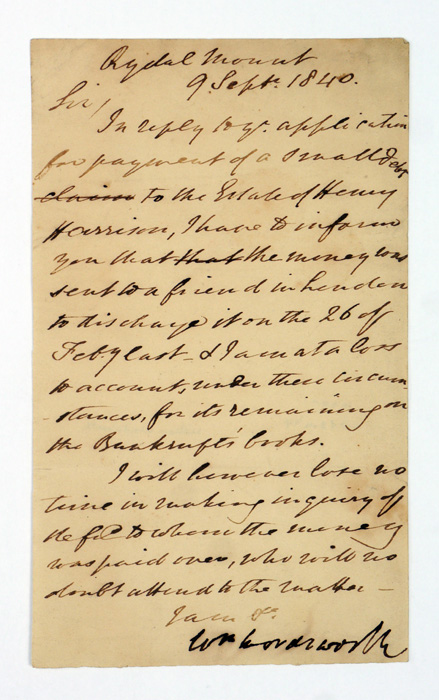 Rydal Mount
9 Septr. 1840.
Sir,
In reply to yr. application
for payment of a small debt
claim to the Estate of Henry
Harrison, I have to inform
you that that the money was
sent to a friend in London
to discharge it on the 26 of
Feby last - & I am at a loss
to account, under these circum
-stances, for its remaining on
the Bankrupt's books.
I will however lose no
time in making inquiry of
to whom the money
was paid over, who will no
doubt attend to the matter -
I am &c.
Wm Wordsworth